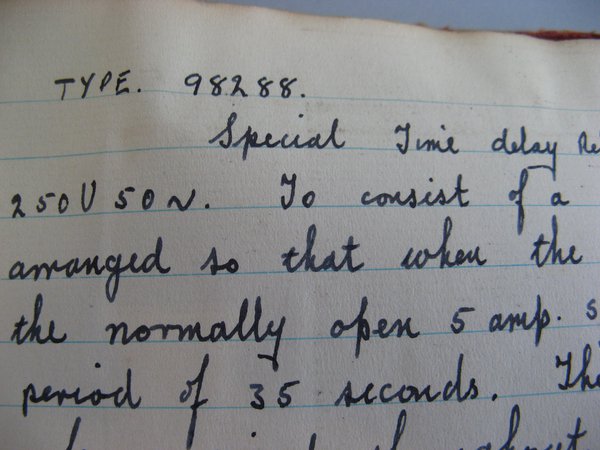 TYPE. 98288.
Special Time delay Re
250V 50~. To consist of a
arranged so that when the
the normally open 5 amp. s
period of 35 seconds. Thi